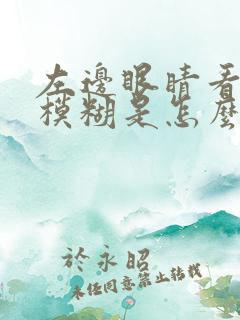 左邊眼睛看
模糊是怎麼
於永昭
未經同意禁止轉載